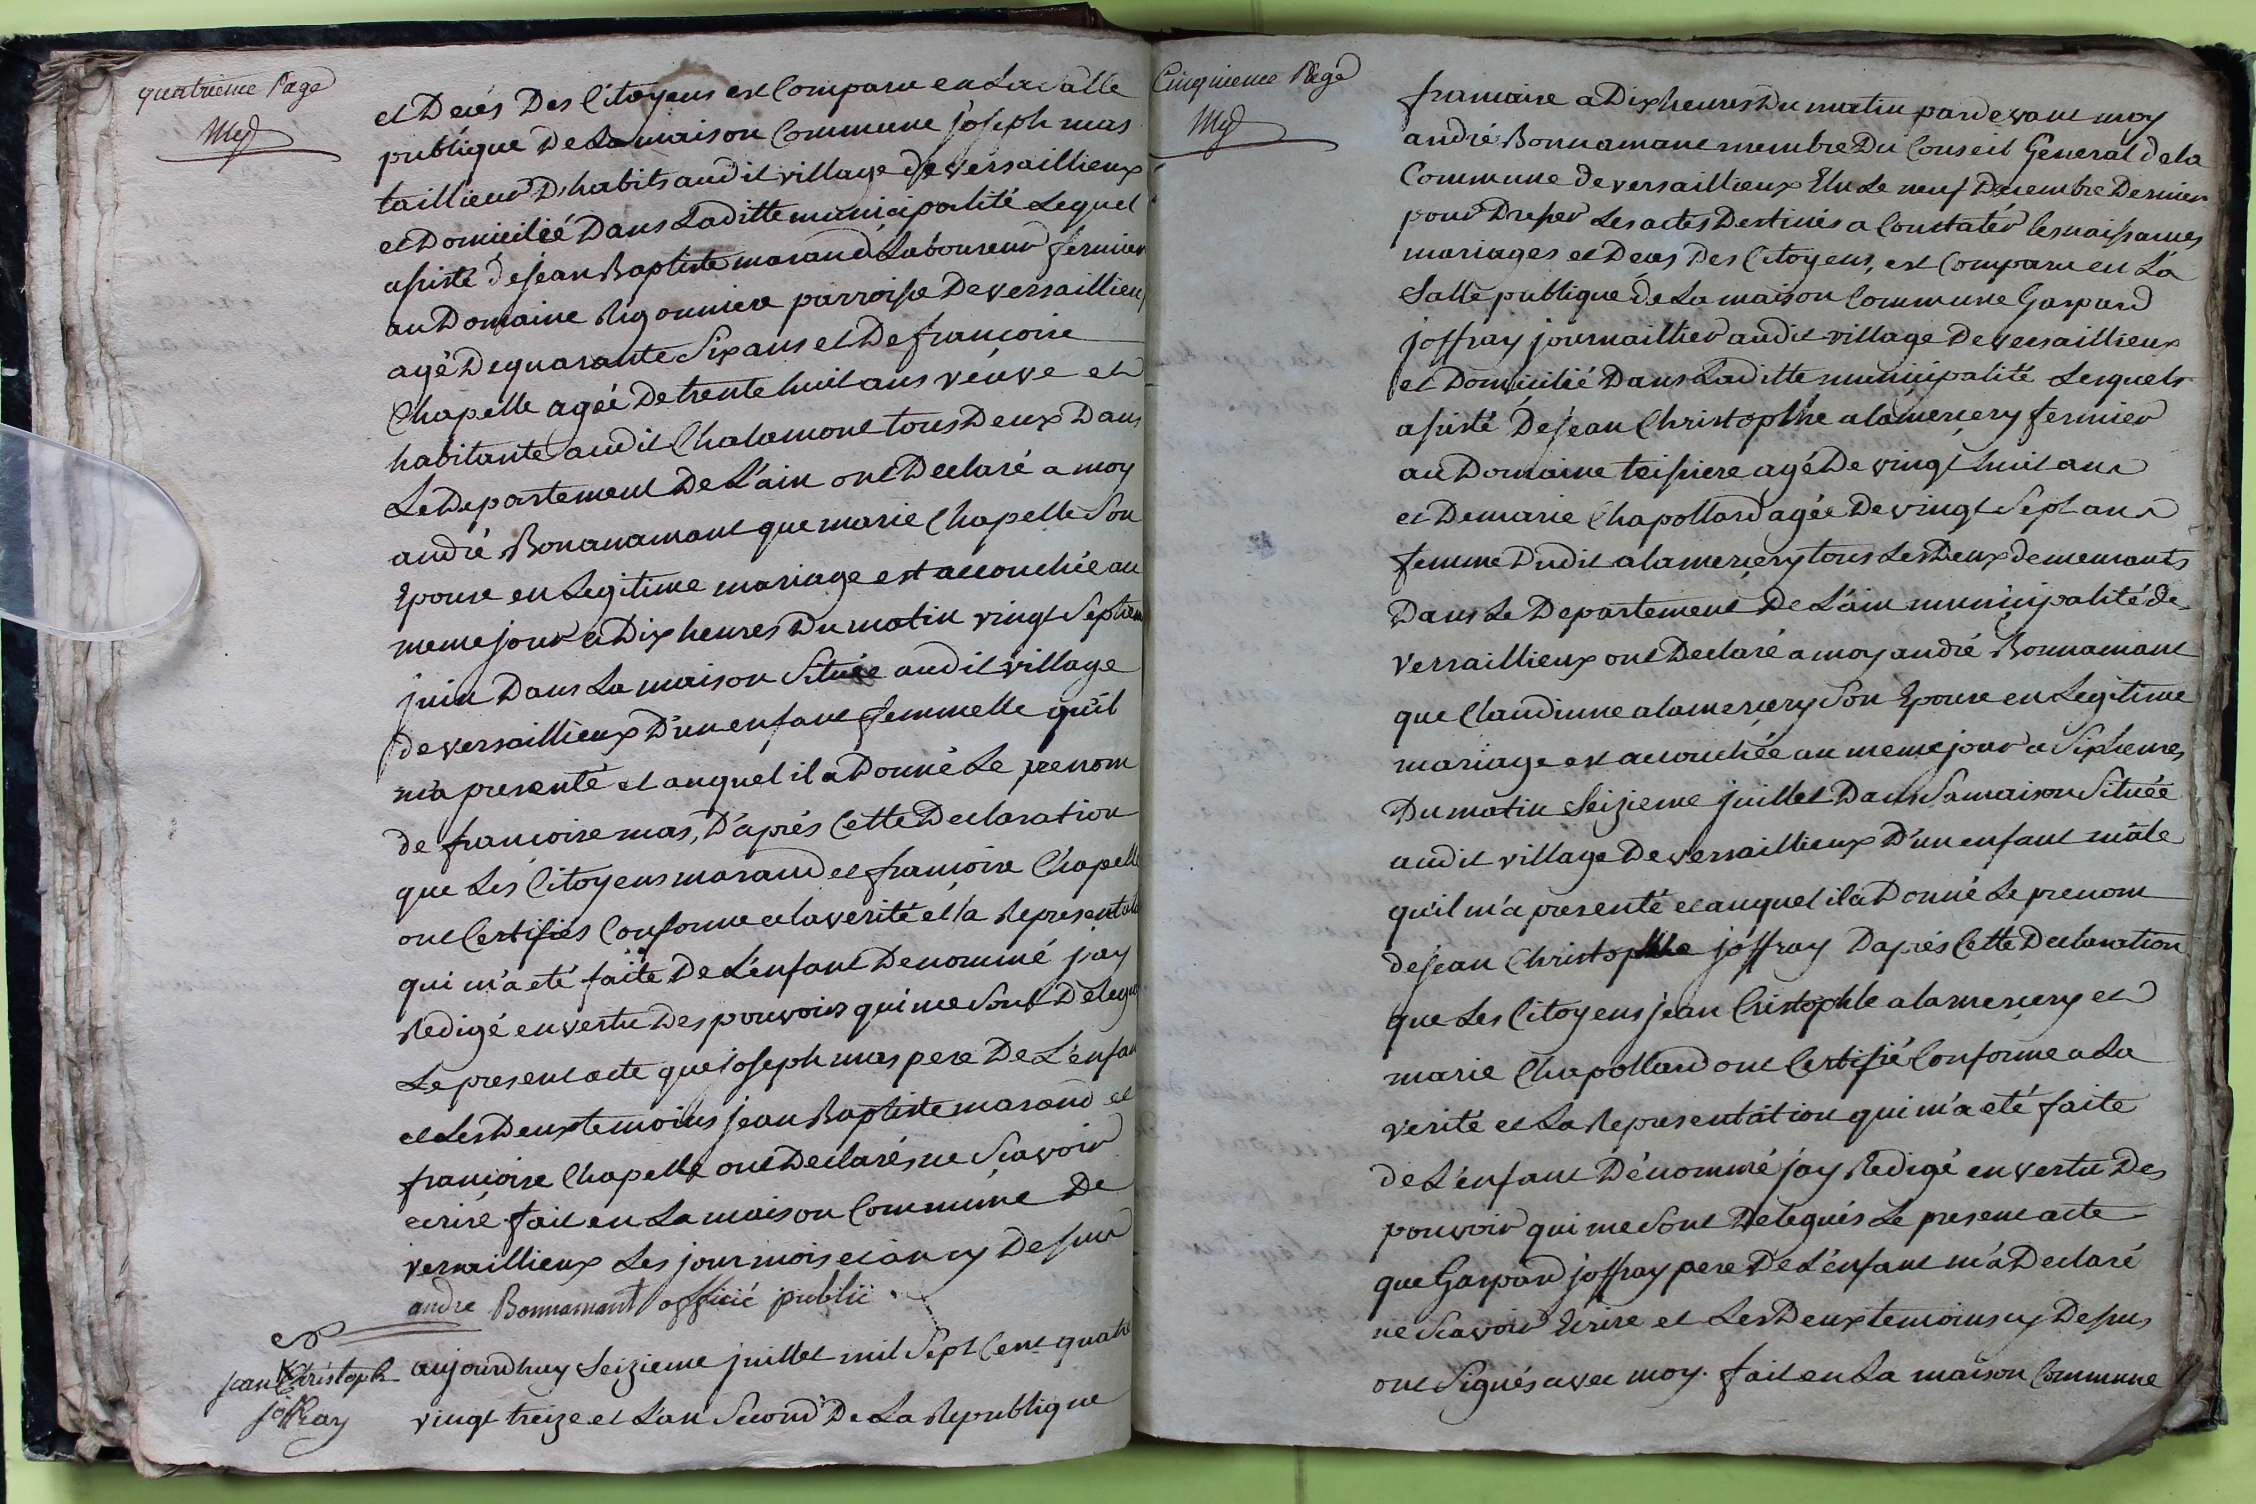 quatrieme Page
et Decés Des Citoyens est Comparu en La Salle
publique De La maison Commune joseph mas
taillieur D'habits audit village de versaillieux
et Domicilié Dans Laditte municipalité Lequel
assisté de jean Baptiste marand Laboureur fermier
au Domaine Rigonniere parroisse De versaillieux
agé De quarante Six ans et De francoise
Chapelle agéé De trente huit ans veuve et
habitante audit Chalamont tous Deux Dans
Le Departement De L'ain ont Declaré a moy
andré Bonanamant que marie Chapelle Son
Epouse en Legitime mariage est accouchée au
meme jour a Dix heures Du matin vingt Septieme
juin Dans La maison Située audit village
de versaillieux D'un enfant femmelle qu'il
m'a presenté et auquel il a Donné Le prenom
de francoise mas, D'aprés Cette Declaration
que Les Citoyens marand et francoise Chapelle
ont Certifiés Conforme a la verité et la Representation
qui m'a eté faite De L'enfant Denommé j'ay
Redigé en vertu Des pouvoirs qui me Sont Delegués
Le present acte que joseph mas pere De L'enfant
et Les Deux temoins jean Baptiste marand et
francoise Chapelle ont Declarés ne Scavoir
ecrire fait en La maison Commune De
versaillieux Les jour mois et an cy Dessus
andre Bonnamant officié publii
jean Christoph
joffray
aujourdhuy Seizieme juillet mil Sept Cent quatre
vingt treize et L'an Second De La Republique
Cinquieme Page
francaise a Dix heures Du matin pardevant moy
andré Bonnamant membre Du Conseil General de la
Commune de versaillieux Elu Le neuf Decembre Dernier
pour Dresser Les actes Destinés a Constatér les naissances
mariages et Deces Des Citoyens, est Comparu en La
Salle publique de La maison Commune Gaspard
joffray journaillier audit village De versaillieux
et Domicilié Dans Laditte municipalité Lesquels
assisté De jean Christophle alamercery fermier
au Domaine teissiere agé De vingt huit ans
et De marie Chapollard agée De vingt Sept ans
femme Dudit alamercery tous Les Deux demeurants
Dans Le Departement De L'ain municipalité de
versaillieux ont Declaré a moy andré Bonnamant
que Claudinne alamercery Son Epouse en Legitime
mariage est accouchée au meme jour a Six heures
Du matin Seizieme juillet Dans Sa maison Située
audit village De versaillieux D'un enfant mâle
qu'il m'a presenté et auquel il a Donné Le prenom
de jean Christophle joffray Daprés Cette Declaration
que Les Citoyens jean Cristophle alamercery et
marie Chapollard ont Certifié Conforme a La
verité et La Representation qui m'a eté faite
de L'enfant Dénommé j'ay Redigé en vertu Des
pouvoir qui me Sont Delegués Le present acte
que Gaspard joffray pere De L'enfant m'a Declaré
ne Scavoir Ecrire et Les Deux temoins cy Dessus
ont Signés avec moy. fait en La maison Commune